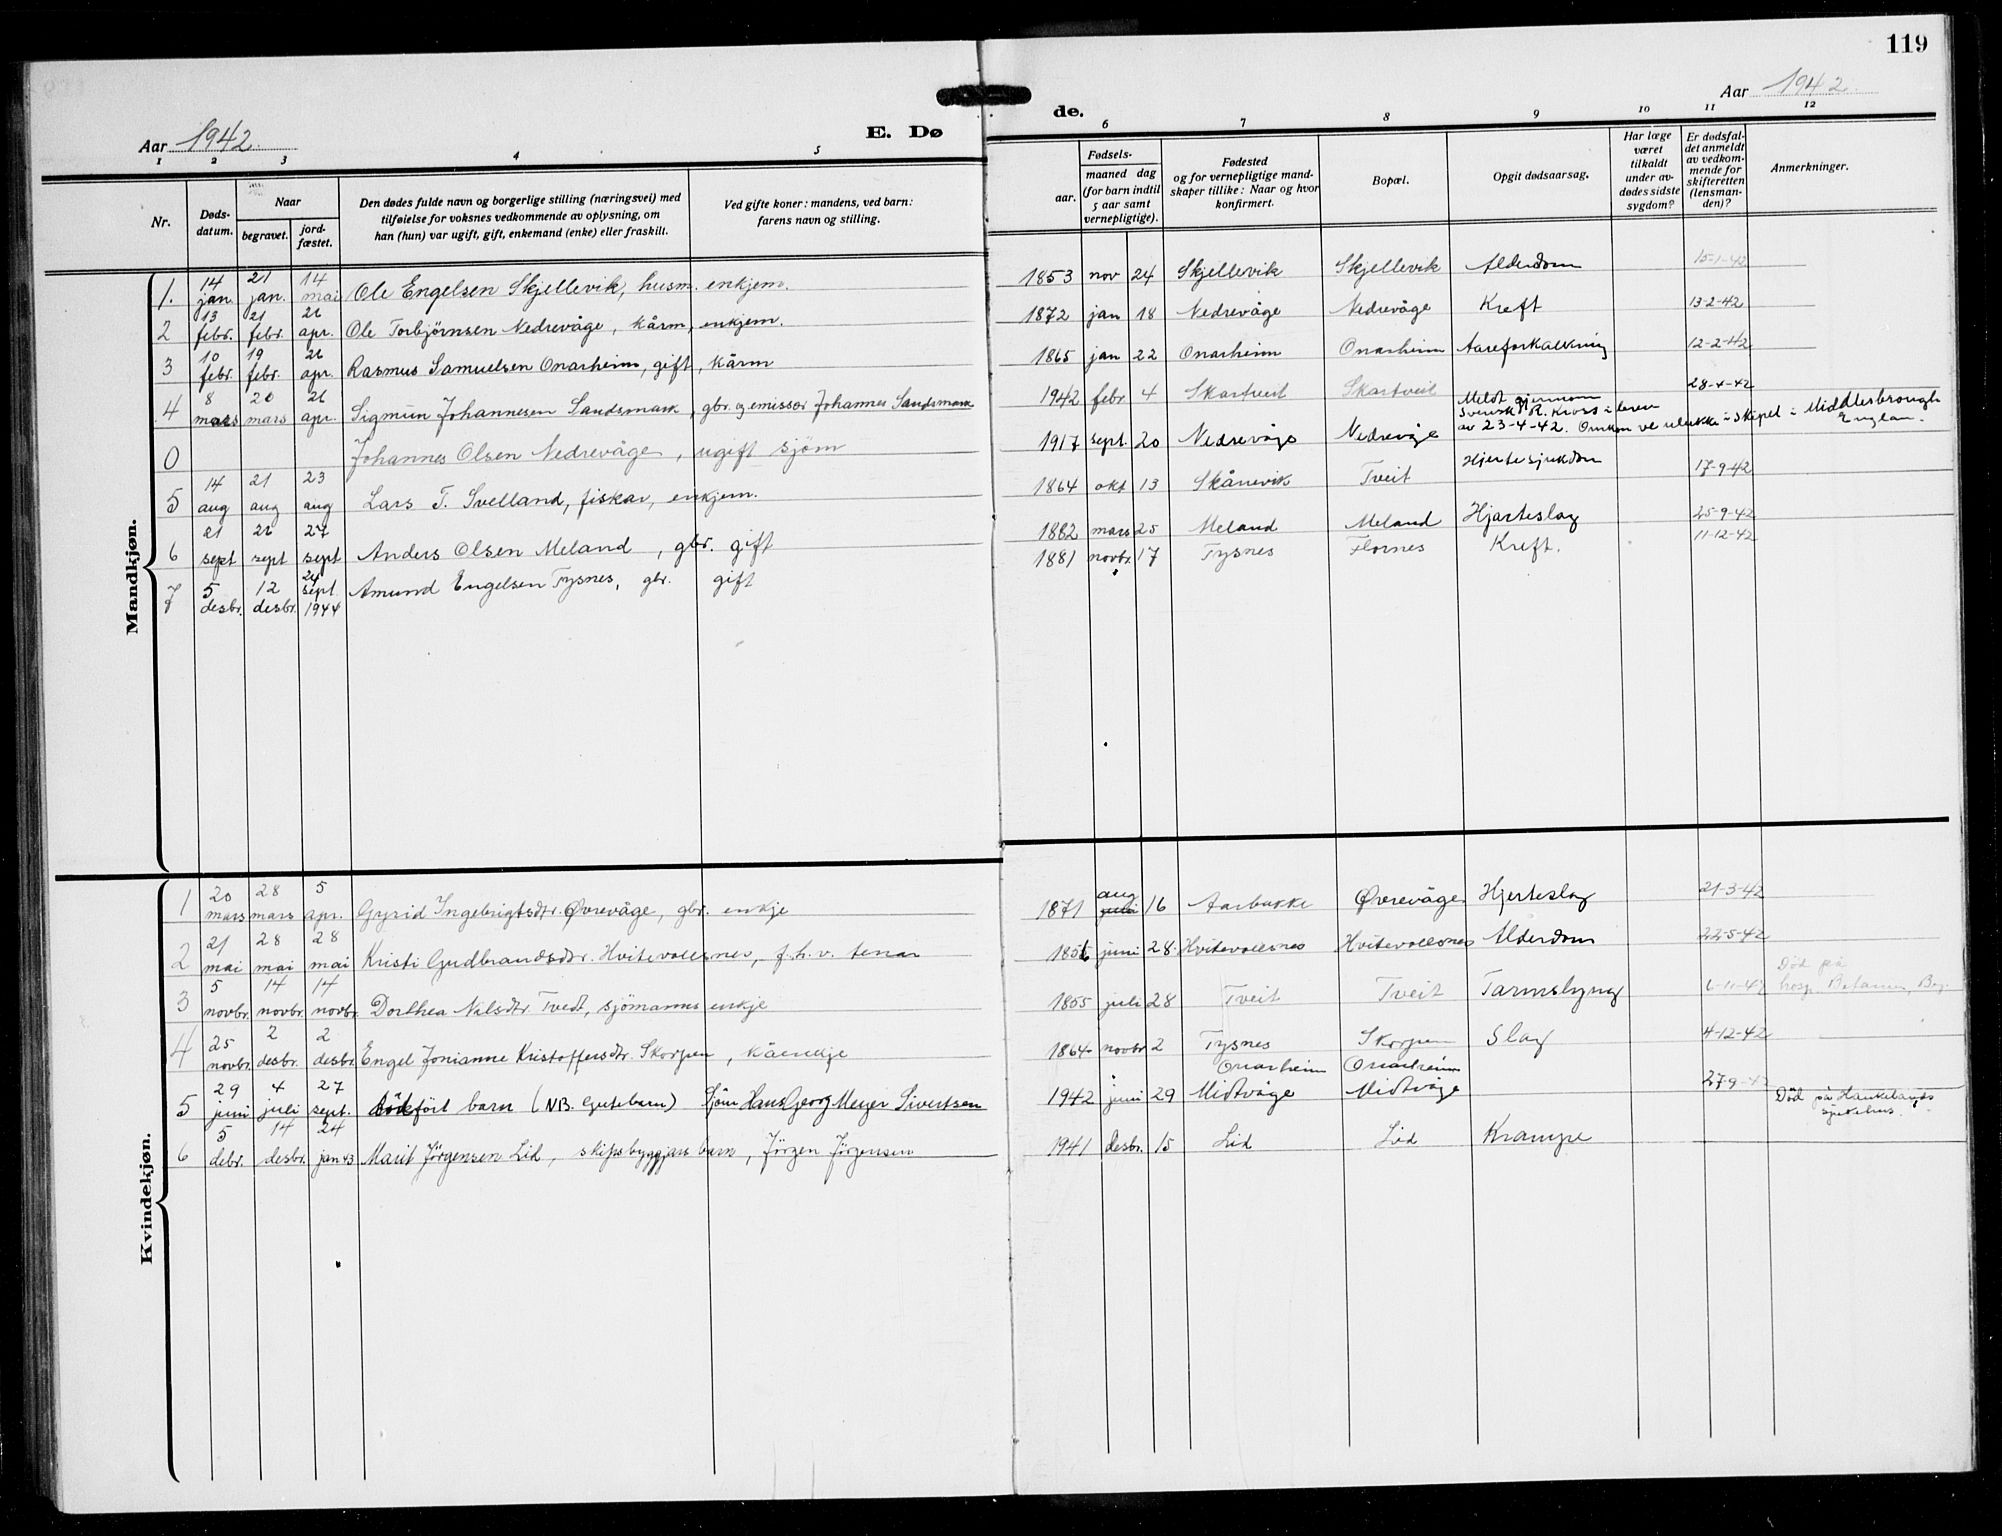 119
Aar 1942.
E. Dø
de.
Aar 1942.
1 2 3 4 5 6 7 8 9 10 11 12
Nr.
Døds-
datum.
Naar
begravet.
jord-
fæstet.
Den dødes fulde navn og borgerlige stilling (næringsvei) med
tilføielse for voksnes vedkommende av oplysning, om
han (hun) var ugift, gift, enkemand (enke) eller fraskilt.
Ved gifte koner: mandens, ved barn:
farens navn og stilling.
Fødsels-
aar. maaned dag
(for barn indtil
5 aar samt
vernepligtige).
Fødested
og for vernepligtige mand-
skaper tillike: Naar og hvor
konfirmert.
Bopæl.
Opgit dødsaarsag.
Har læge
været
tilkaldt
under av-
dødes sidste
sygdom?
Er dødsfal-
det anmeldt
av vedkom-
mende for
skifteretten
(lensman-
den)?
Anmerkninger.
Mandkjøn.
1. 14 jan. 21 jan. 14 mai Ole Engelsen Skjellevik, husm. enkjem. 1853 nov 24 Skjellevik Skjellevik Alderdom 15-1-42
2 13 febr. 21 febr. 26 apr. Ole Torbjørnsen Nedrevåge, kårm, enkjem. 1872 jan 18 Nedrevåge Nedrevåge Kreft 13-2-42
3 10 febr. 19 febr. 26 apr. Rasmus Samuelsen Onarheim, gift, kårm 1865 jan 22 Onarheim Onarheim Aareforkalkning 12-2-42
4 8 mars 20 mars 26 apr. Sigmun Johannesen Sandsmark, gbr. og emissær Johannes Sandsmark 1942 febr 4 Skartveit Skartveit 28-4-42
0 Johannes Olsen Nedrevåge, ugift sjöm 1917 sept. 20 Nedrevåge Nedrevåge Meldt gjennom
Svensk R. Kross i brev
av 23-4-42. Omkom ve ulukke i skipet i Middlesbrough
Englan.
5 14 aug 21 aug 23 aug Lars T. Svelland, fiskar, enkjem. 1864 okt 13 Skånevik Tveit Hjertesjukdom 17-9-42
6 21 sept 26 sept 27 sept Anders Olsen Meland, gbr. gift 1882 mars 25 Meland Meland Hjarteslag 25-9-42
7 5 desbr. 12 desbr. 24 sept. 1944 Amund Engelsen Tysnes, gbr. gift 1881 novbr. 17 Tysnes Flornes Kreft. 11-12-42
Kvindekjøn.
1 20 mars 28 mars 5 apr. Gyrid Ingebrigtsdtr. Øvrevåge, gbr. enkje 1871 aug 16 Aarbakke Øvrevåge Hjerteslag 21-3-42
2 21 mai 28 mai 28 mai Kristi Gudbrandsdtr. Hvitevollsnes, f.h.v. tenar juni 28. Hvitevollsnes Hvitevollsnes Alderdom 22-5-42
3 5 novbr. 14 novbr. 14 novbr. Dorthea Nilsdtr Tvedt, sjömanns enkje 1855 juli 28 Tveit Tveit Tarmslyng 6-11-42 Död på
hosp. Betanien, Bg.
4 25 novbr. 2 desbr. 2 desbr. Engel Jonianne Kristoffersdtr. Skorpen, kåenkje 1864 novbr 2 Tysnes Skorpen Slag 4-12-42
5 29 juni 4 juli 27 sept. dödfödt barn (NB. Gutebarn) Sjöm Hans Georg Meyer Sivertsen 1942 juni 29 Onarheim Midtvåge Onarheim Midtvåge 27-9-42
6 5 debr. 14 desbr. 24 jan 43 Marit Jörgensen Lid, skipsbyggjars barn, Jörgen Jörgensen 1941 desbr. 15 Lid Lid Krampe Död på Haukelands
sjukehus.